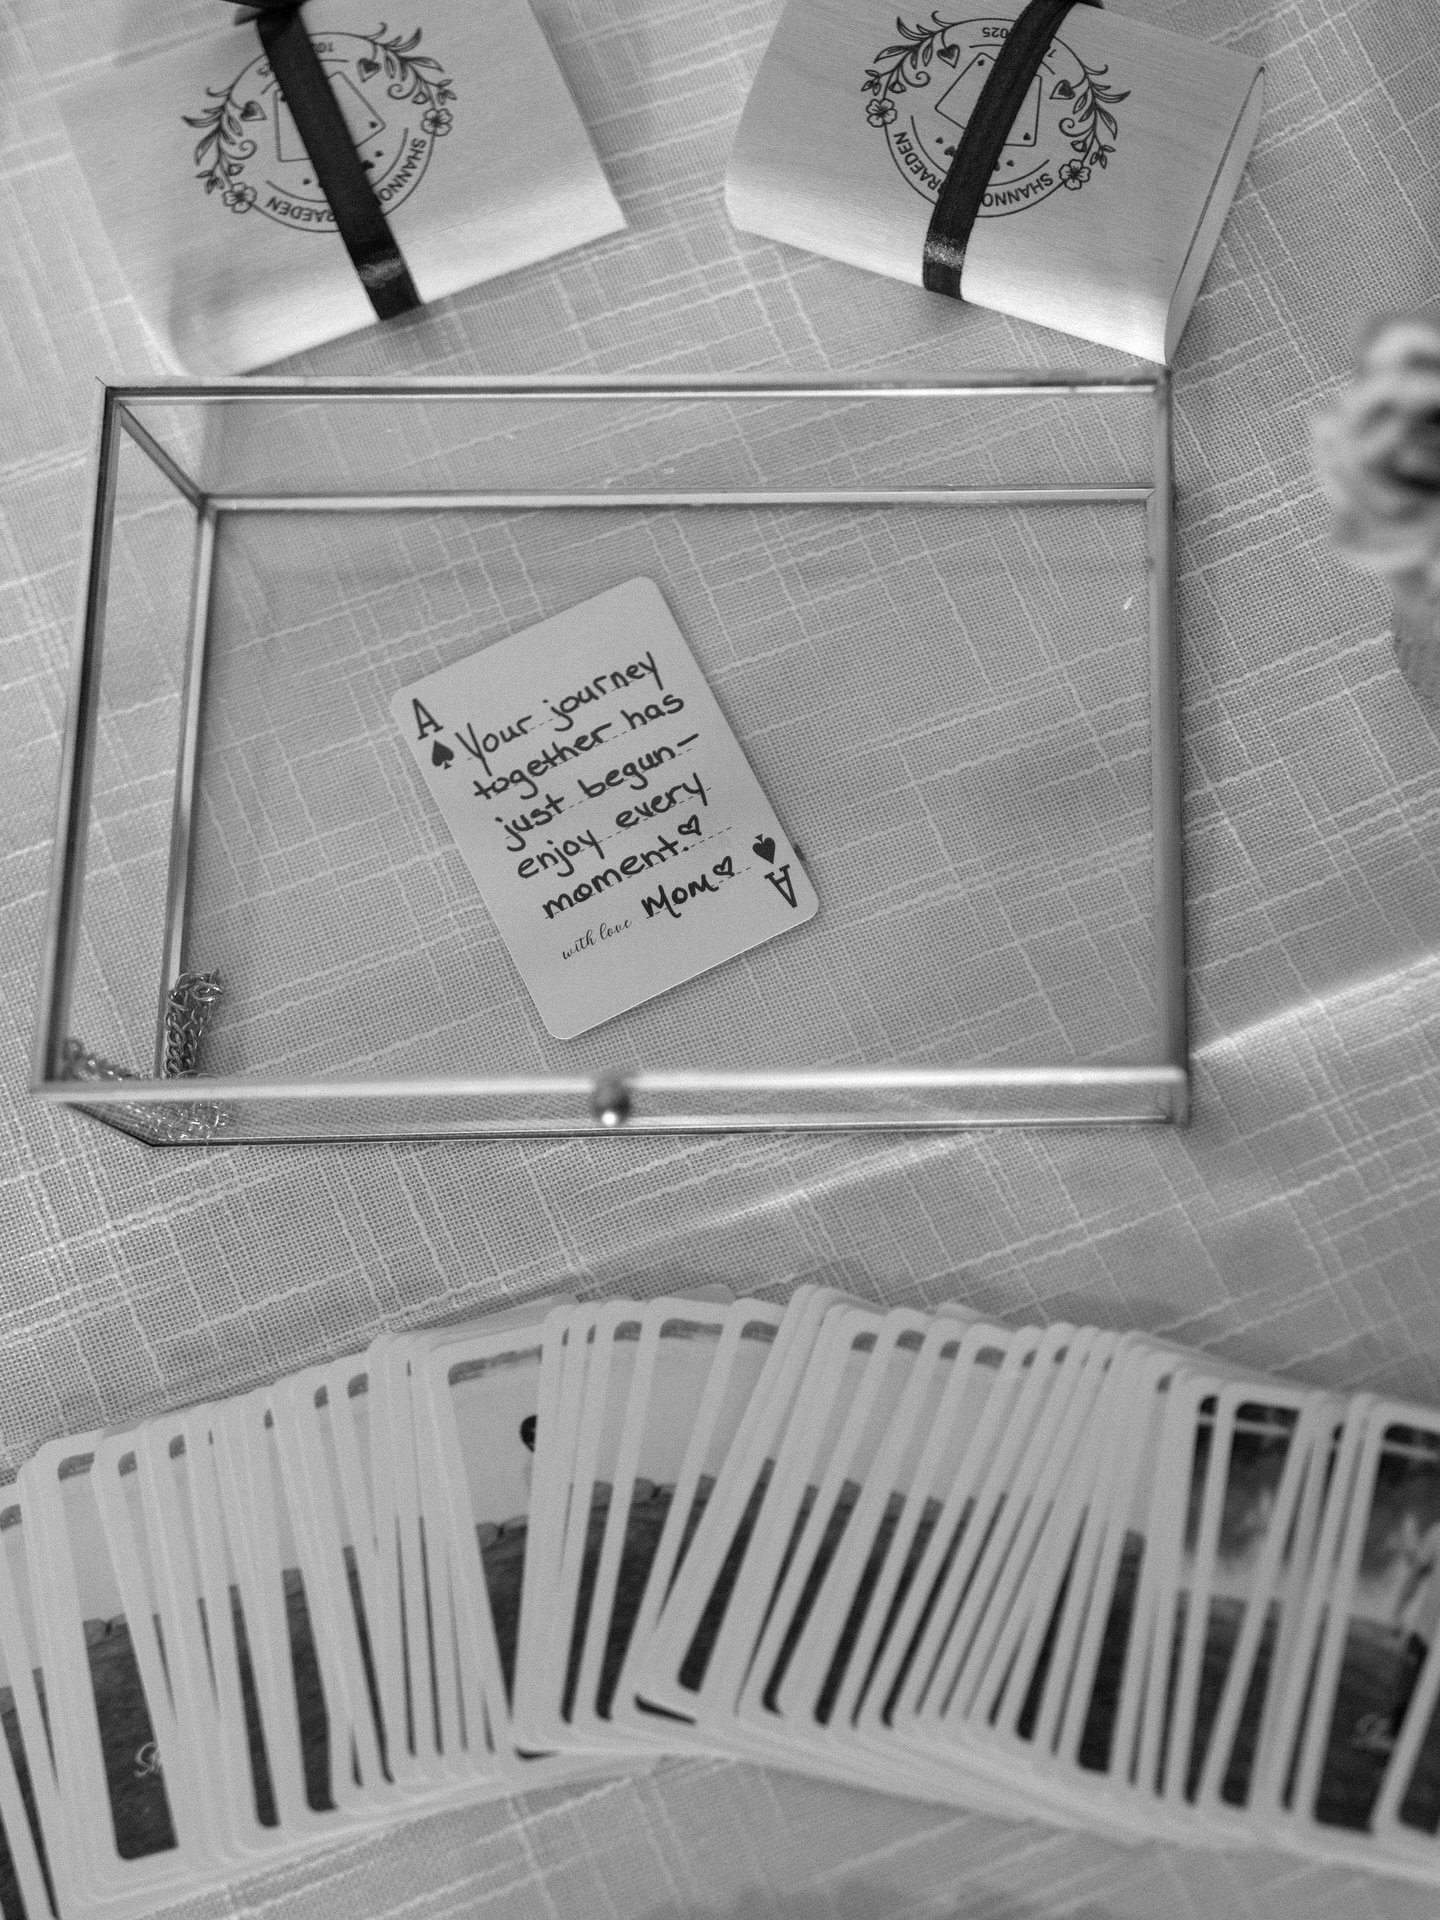 2025
SHANNO
RAEDEN
025
SHANNO
RAEDEN
A
Your journey
together has
just begun—
enjoy every
moment.♡
with love Mom♡
A